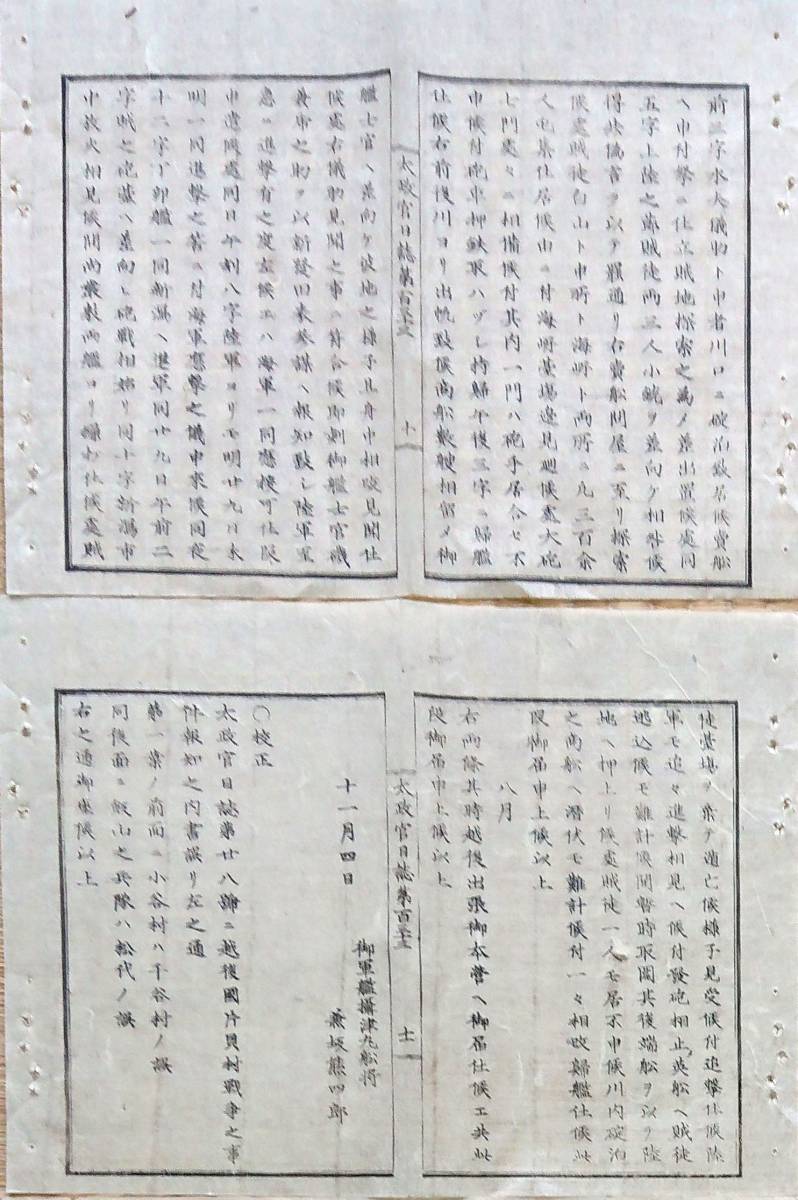 前三字水夫儀助ト申者川口ニ碇泊致居候賣船
ヘ申付祭ニ仕立賊地探索之為メ差出置候處同
五字上陸之節賊徒両三人小銃ヲ差向ケ相咎候
得共偽言ヲ以テ罷通リ右賣船問屋ニ至リ探索
候處賊徒白山ト申所ト海岸ト両所ニ凡三百余
人屯集仕居候由ニ付海岸臺場邊見廻候處大砲
七門處々ニ相備候付其内一門ハ砲手居合セ不
申候付砲車抑鉄取ハヅシ持歸午後三字ニ歸艦
仕候右前後川ヨリ出帆致候商船数艘相留メ御
太政官日誌第百五十三
十
艦士官ヘ差向ケ彼地之様子且身中相改見聞仕
候處右儀助見聞之事ニ符合候即刻御艦士官磯
邊
之助ヲ以新發田表参謀ヘ報知致シ陸軍至
急ニ進撃有之度左候エハ海軍一同應接可仕段
申遣候處同日午刻八字陸軍ヨリモ明廿九日未
明一同進撃之筈ニ付海軍應撃之儀申来候同夜
十二字丁卯艦一同新潟ヘ進軍同廿九日午前二
字賊之砲臺ヘ差向ヒ砲戰相始リ同十字新潟市
中放火相見候間尚嚴敷両艦ヨリ
仕候處賊
徒臺場ヲ棄テ遁亡候様子見受候付追撃仕候陸
軍モ追々進撃相見ヘ候付發砲相止英船ヘ賊徒
逃込候モ難計候間暫時取圍其後端船ヲ以テ陸
地ヘ押上リ候處賊徒一人モ居不申候川内碇泊
之商船ヘ潜伏モ難計候付一々相改歸艦仕候此
段御届申上候以上
八月
右両條其時越後出張御本營ヘ御届仕候エ共此
段御届申上候以上
太政官日誌第百五十三
十一
御軍艦攝津丸船将
十一月四日
兼坂熊四郎
〇校正
太政官日誌第廿八號ニ越後國片貝村戰争之事
件報知之内書誤リ左之通
第一葉ノ前面ニ小谷村ハ千谷村ノ誤
同後面ニ飯山之兵隊ハ松代ノ誤
右之通御座候以上